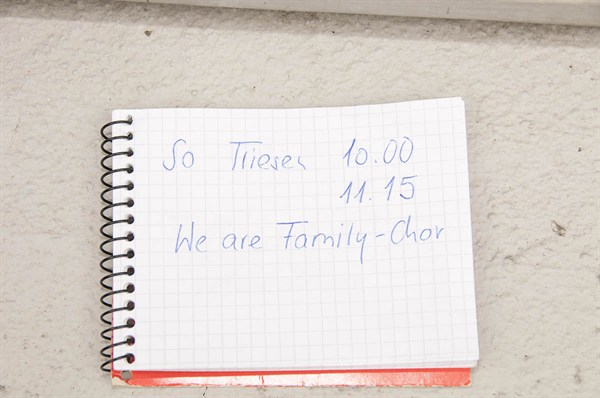 So Triesen 10.00
11.15
We are Family-Chor